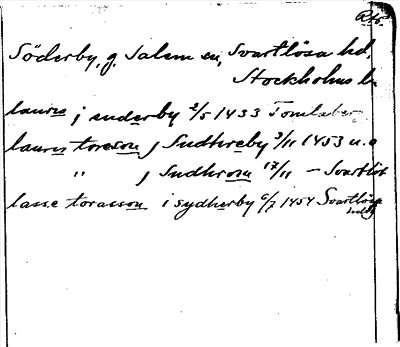 Rtb.
Söderby, g. Salem sn, Svartlösa hd,
Stockholms l.
laur&#x332;is j suderby 2/5 1433 Tomtaber
lauris toreson j Sudhreby 3/11 1453 u.o
" j Sudhrom 17/11 – Svartlöt
lasse torasson i sydherby 6/7 1454 Svartlösa